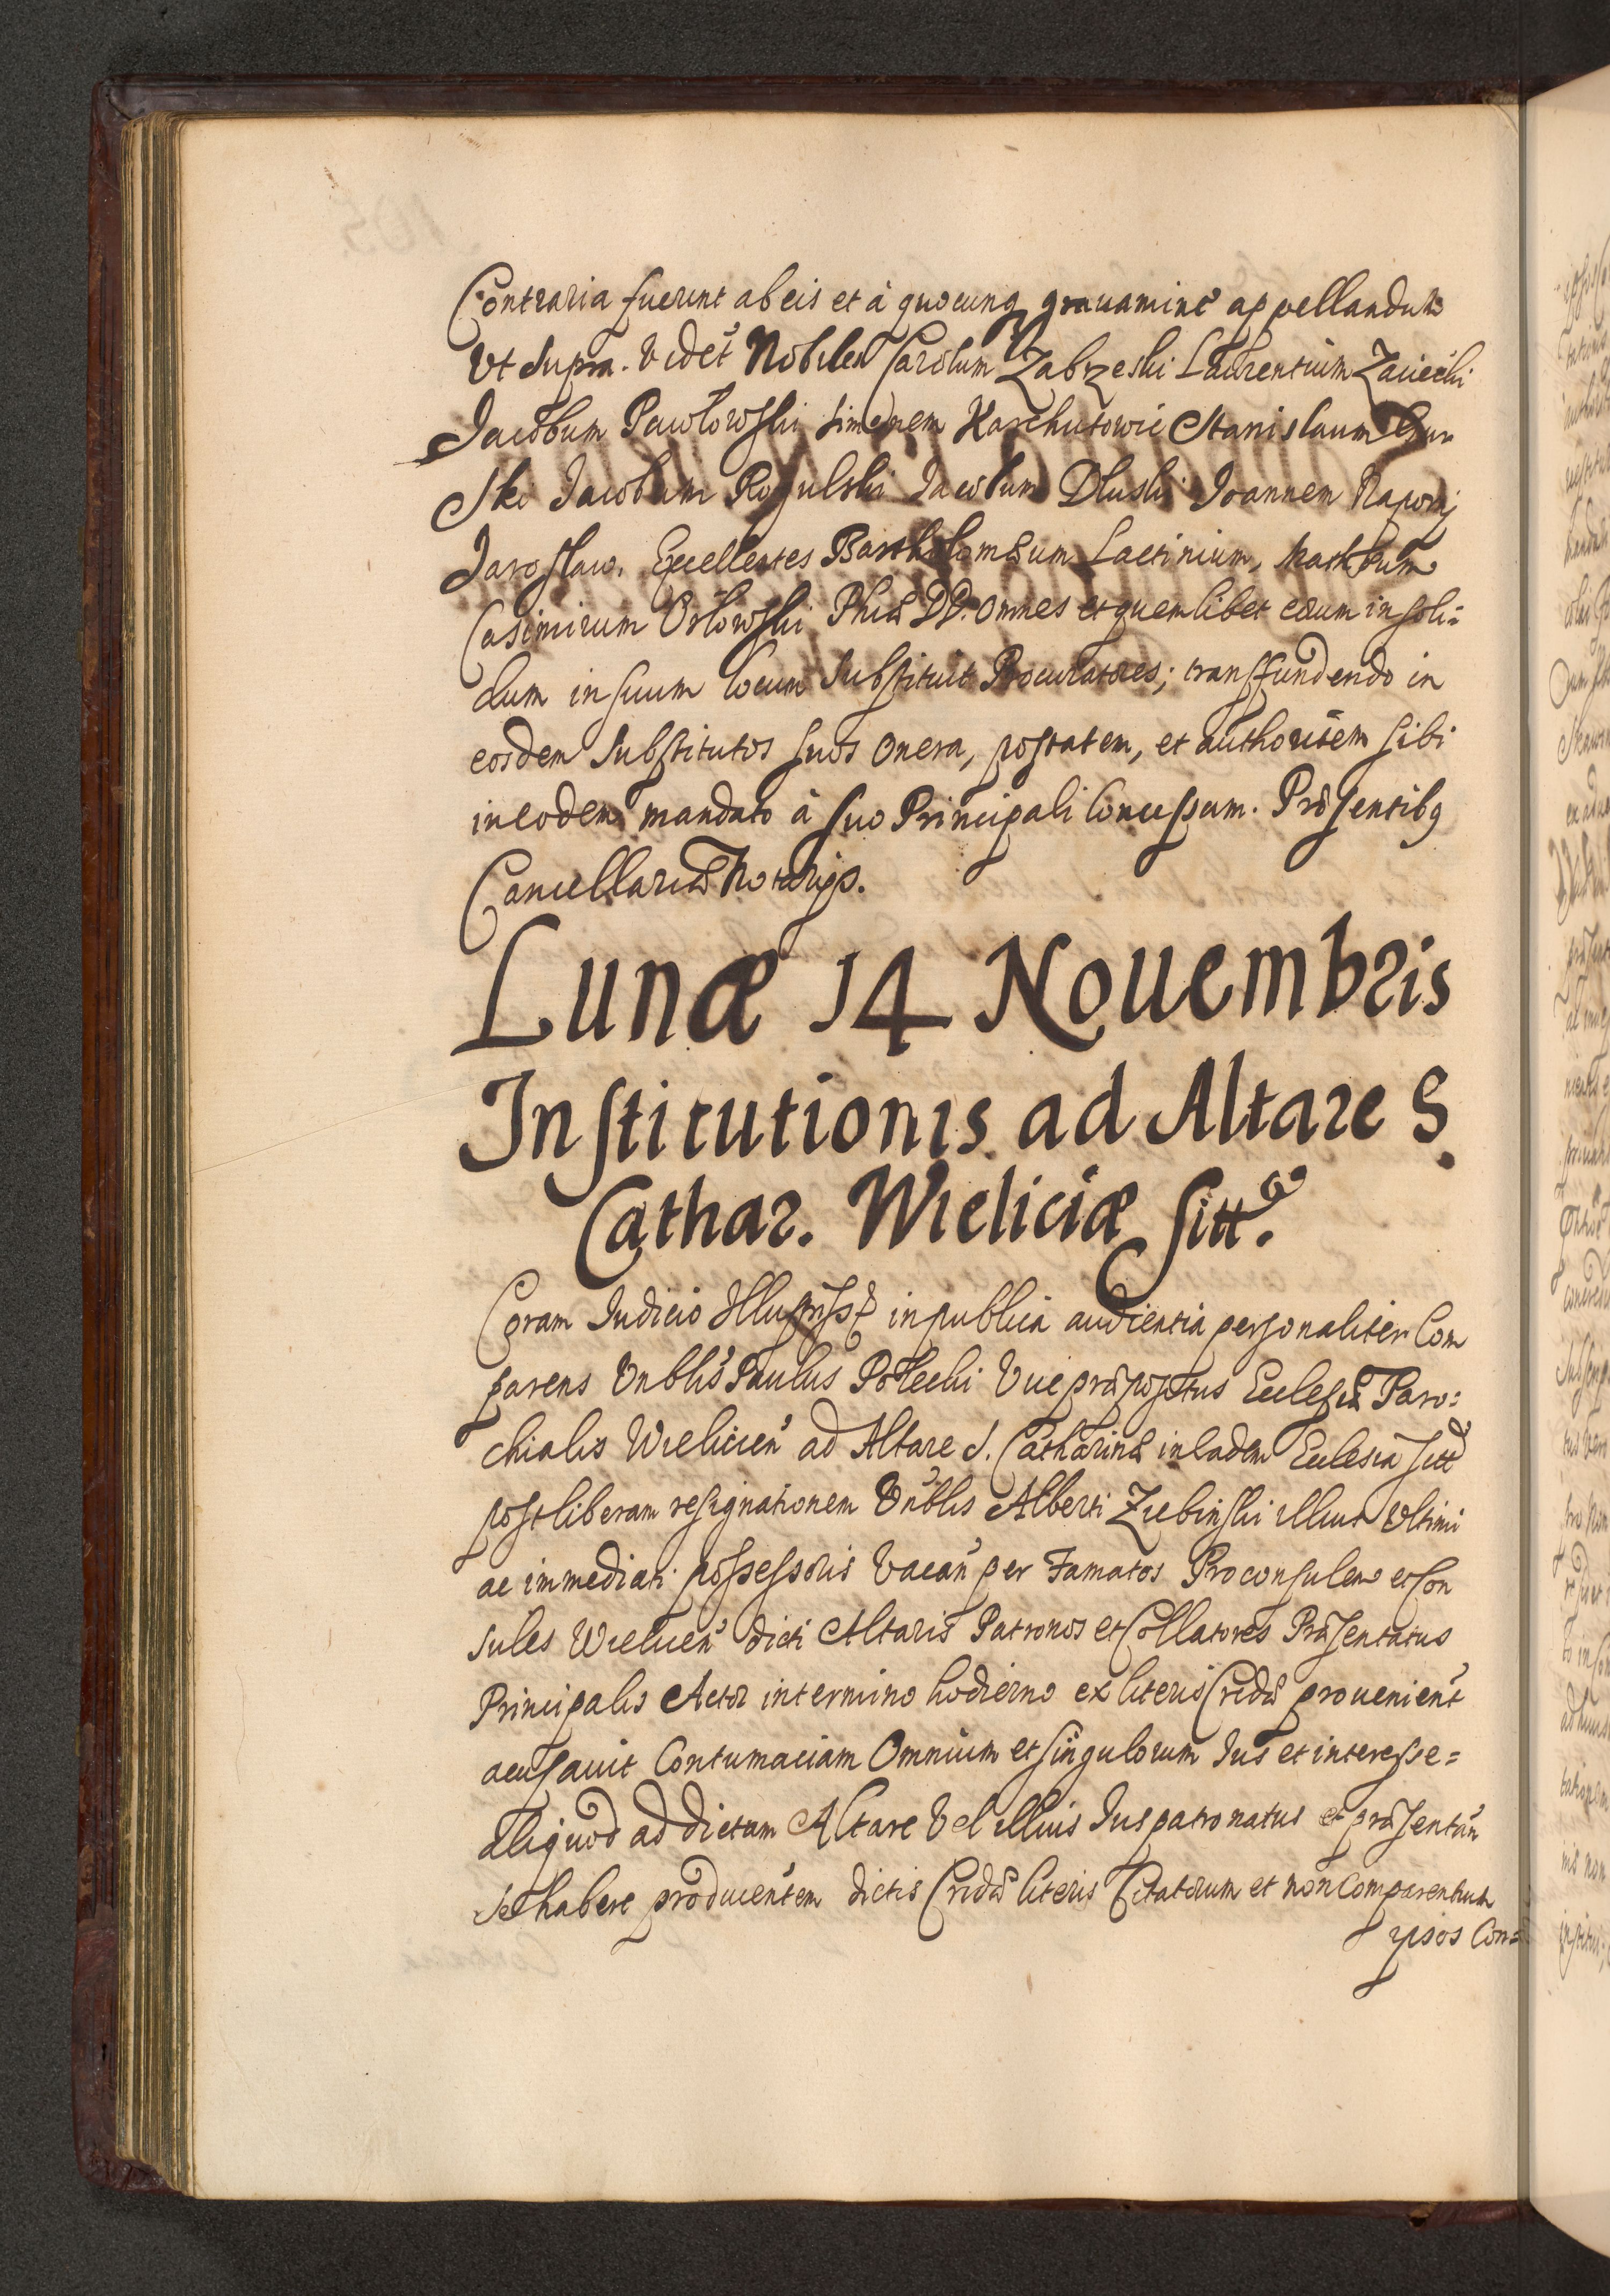 Contraria fuerint ab eis et à quocunq grauamine appellandum
Vt Supra. Videt Nobiles Carolum Zabrzeski Laurentium Zaiecki
Jacobum Pawlowski Simonem Karchutowic Stanislaum
Ski Jacobum Rogulski Jacobum Dluski Joannem Naporij
Jaroslaw. Excellentes Bartholomæum Lactinium, Mathæum
Casimirum Orlowski Phiæ DD. Omnes et quemlibet eorum in soli=
dum in suum locum Substituit Procuratores; transfundendo in
eosdem Substitutos suos onera, postatem, et authoritem sibi
in eodem mandato à suo Principali Concessam. Præsentibq
Cancellariæ Notarijs.
Lunæ 14 Nouembris
Institutionis ad Altare S.
Cathar. Wieliciæ sitt.
Coram Judicio Illustriss in publica audientia personaliter Com
parens Vnblis Paulus Potecki Vicepræpositus Ecclesiæ Paro=
chialis Wielicien ad Altare S. Catharinæ in eadem Ecclesia sitt
post liberam resignationem Vnblis Alberti Ziebinski illius Vltimi
ac immediati possessoris Vacan per Famatos Proconsulem et Con
sules Wielicen dicti Altaris Patronos et Collatores Præsentatus
Principalis Actor in termino hodierno ex literis Cridæ prouenient
acusauit Contumaciam Omnium et singulorum Jus et interesse=
aliquod ad dictum Altare Vel illius Juspatronatus et præsentan
se habere producentem dictis Cridæ literis Citatorum et non Comparentium
ipsos Con=